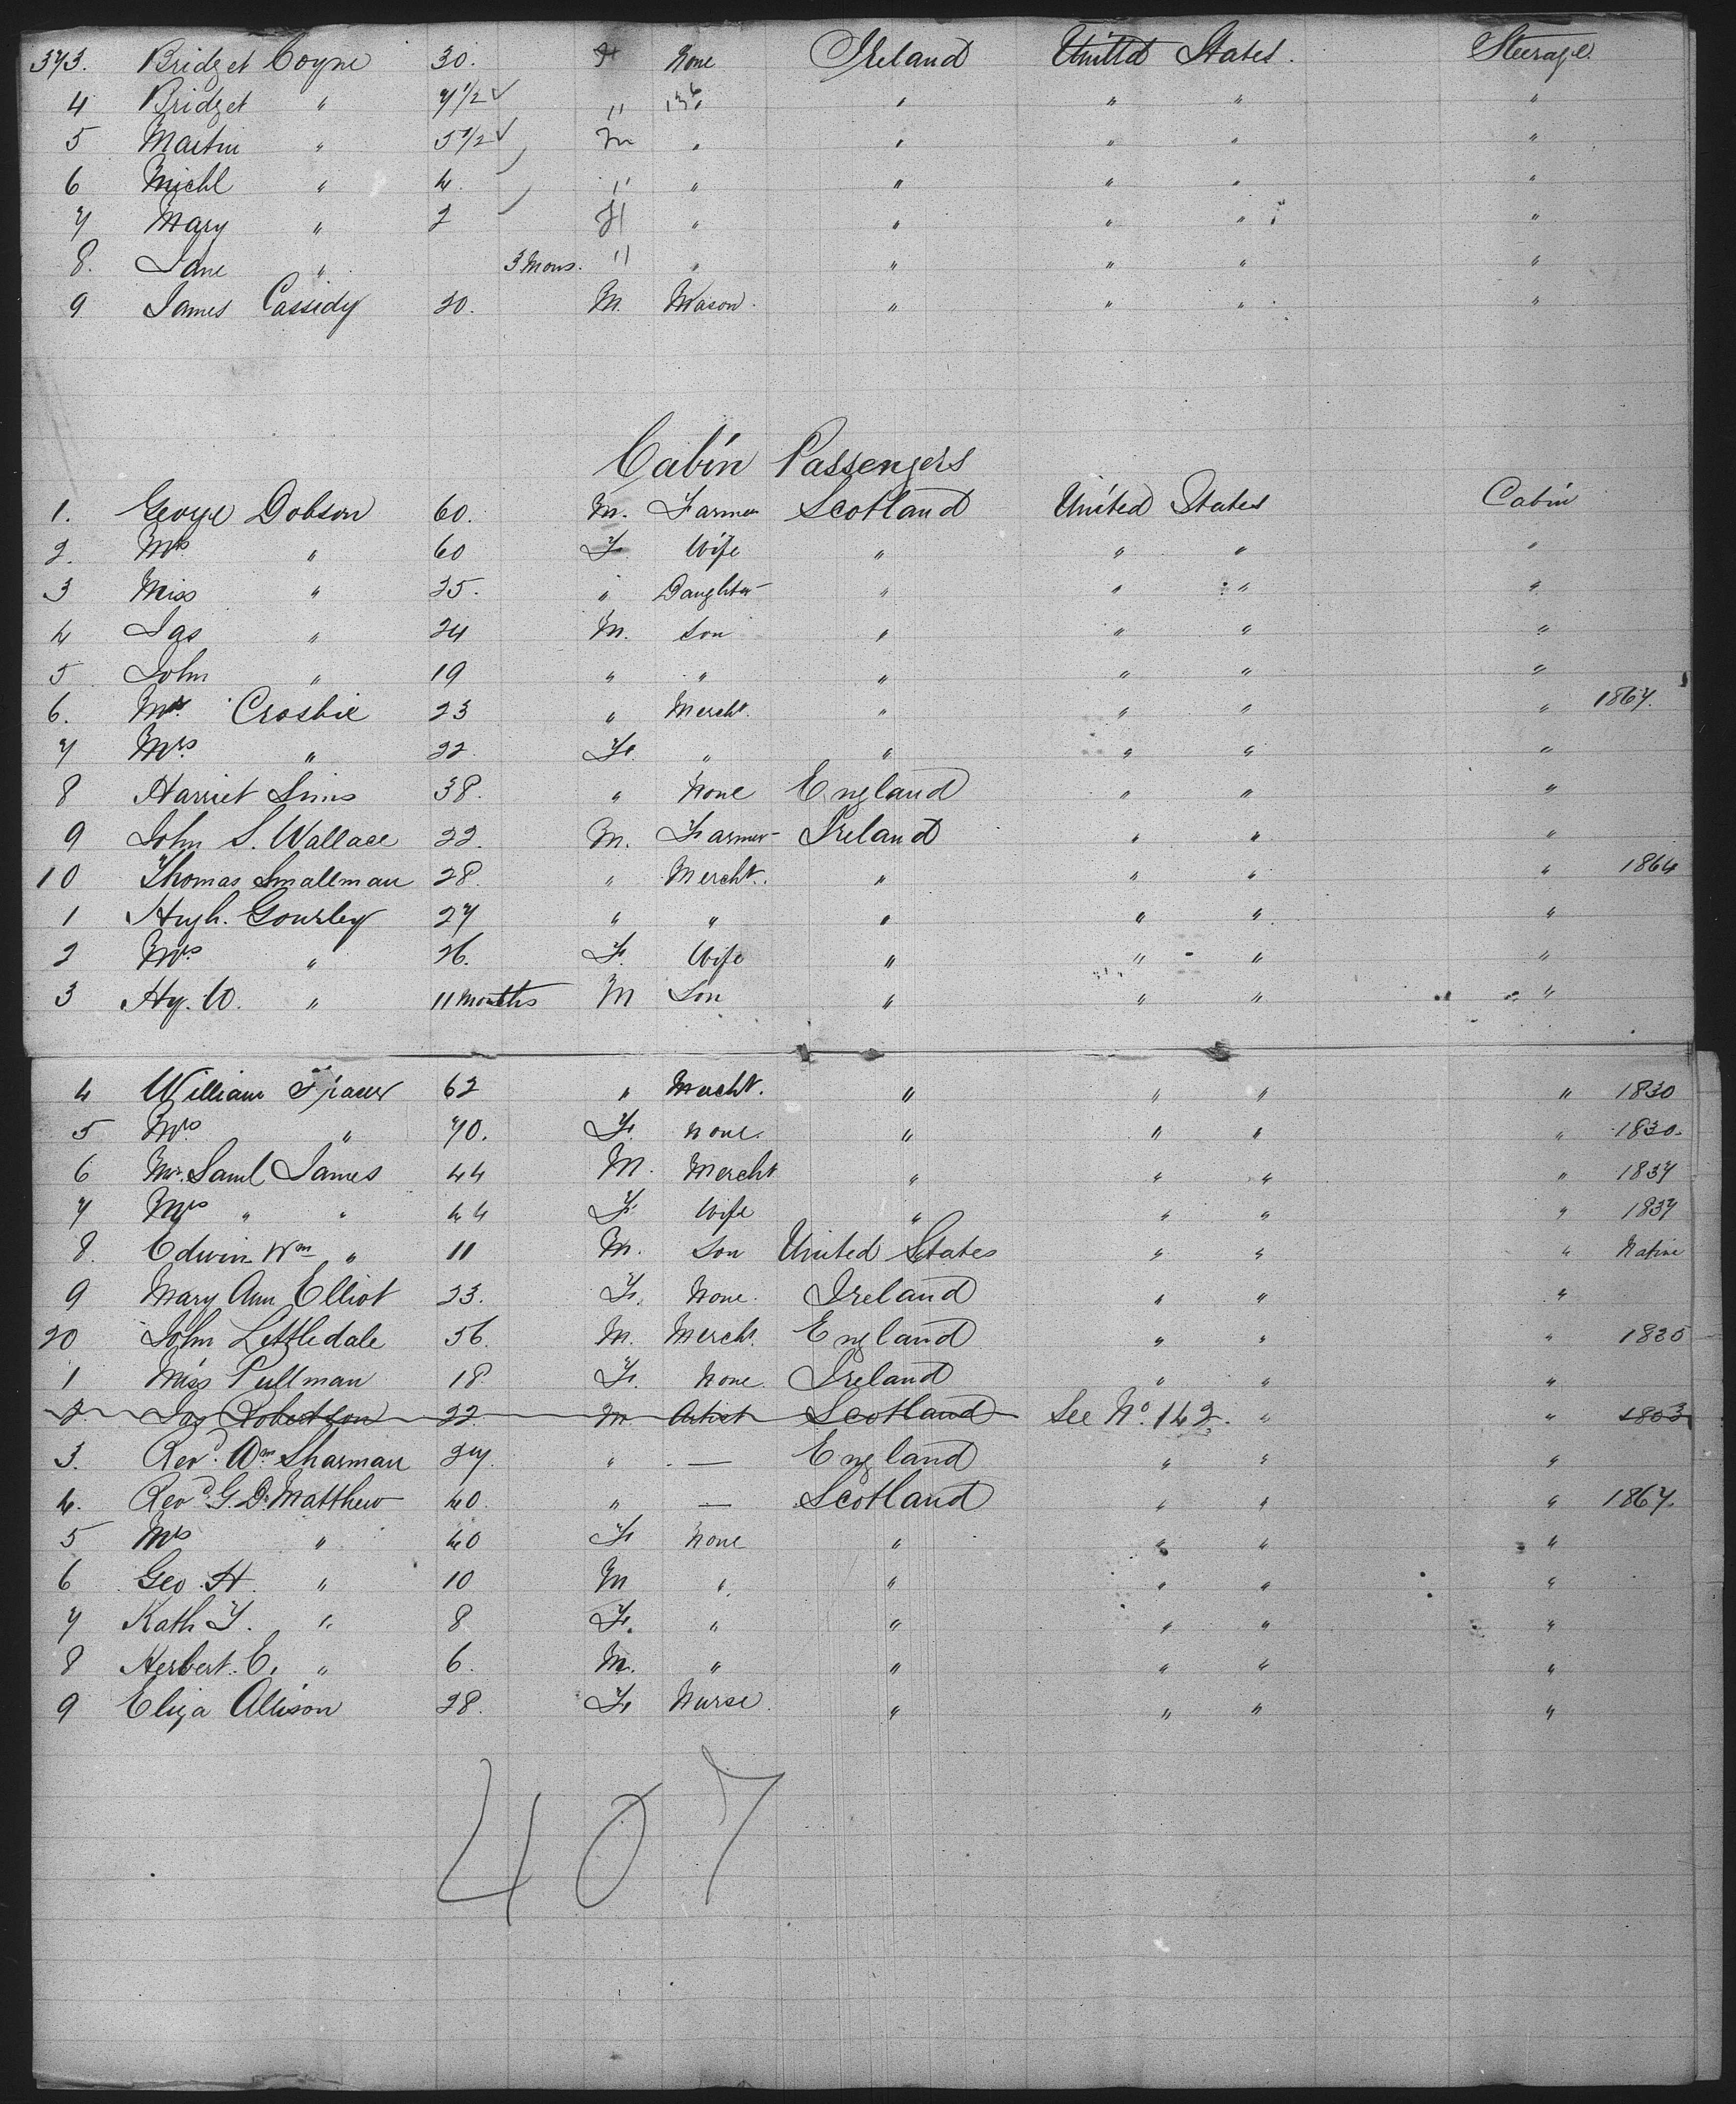 373. Bridget Coyne 30. F None Ireland United States. Steerage.
4 Bridget " 7 1/2 ✓ " " " " " "
5 Martin " 5 1/2 ✓ M " " " " "
6 Michl " 4. " " " " " "
7 Mary " 2 F " " " " "
8. Jane " 3 Mons. " " " " " "
9 James Cassidy 20. M. Mason. " " " "
Cabin Passengers
1. George Dobson 60. M. Farmer Scotland United States Cabin
2. Mrs " 60 F Wife " " " "
3 Miss " 25. " Daughter " " " "
4 Jas " 24 M. Son " " " "
5 John " 19 " " " " " "
6. Mr. Crosbie 23 " Mercht. " " " " 1867.
7 Mrs " 22. F. " " " " "
8 Harriet Sims 38. " None England " " "
9 John S. Wallace 22. M. Farmer Ireland " " "
10 Thomas Smallman 28. " Mercht. " " " " 1864
1 Hugh. Gourley 27 " " " " " "
2 Mrs " 26. F. Wife " " " "
3 Hy. W. " 11 Months M Son " " " "
4 William 62 " Mercht. " " " " 1830
5 Mrs " 70. F. None. " " " " 1830.
6 Mr. Saml James 44 M. Mercht " " " " 1837
7 Mrs " " 44 F. Wife " " " " 1837
8. Edwin Wm " 11 M. Son United States " " " Native
9 Mary Ann Elliot 23. F. None. Ireland " " "
20 John Lettledale 56. M. Mercht. England " " " 1835
1 Miss Pullman 18. F. None. Ireland " " "
2. Jas Robertson 22. M Artist Scotland See No. 142. " " 1853
3. Revd. Wm Sharman 27. " — England " " "
4. Revd. G. D. Matthew 40. " — Scotland " " " 1867.
5 Mrs " 40 F None " " " "
6 Geo. H. " 10 M " " " " "
7 Kath Y. " 8 F. " " " " "
8 Herbert. E. " 6. M. " " " " "
9 Eliza Allison 28. F Nurse. " " " "
407